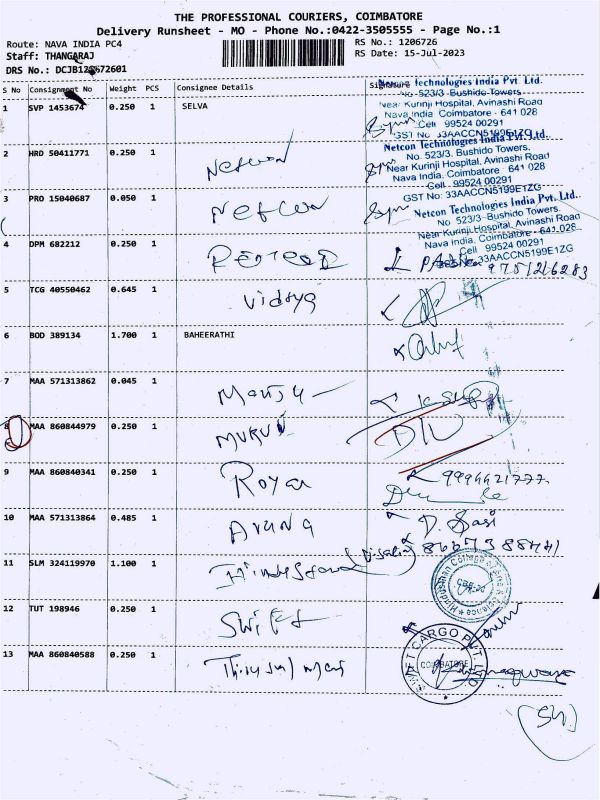 THE PROFESSIONAL COURIERS, COIMBATORE
Delivery Runsheet - MO - Phone No.:0422-3505555 - Page No.:1
Route: NAVA INDIA PC4
RS No.: 1206726
Staff: THANGARAJ
RS Date: 15-Jul-2023
S No Consignment No Weight PCS Consignee Details Signature
1 SVP 1453674 0.250 1 SELVA
Netcon Technologies India Pvt. Ltd.
No. 523/3 Bushido Towers
Near Kurinji Hospital, Avinashi Road
Nava India, Coimbatore - 641 028
Cell 99524 00291
GST No 33AACCN5199E1ZG
2 HRD 50411771 0.250 1 Netcon
Netcon Technologies India Pvt. Ltd.
No. 523/3, Bushido Towers,
Near Kurinji Hospital, Avinashi Road
Nava India, Coimbatore - 641 028
Cell 99524 00291
GST No: 33AACCN5199E1ZG
3 PRO 15040687 0.050 1 Netcon
Netcon Technologies India Pvt. Ltd.
No. 523/3-Bushido Towers
Near Kurinji Hospital, Avinashi Road
Nava India, Coimbatore - 641 028
Cell 99524 00291
33AACCN5199E1ZG
4 DPM 682212 0.250 1
5 TCG 40550462 0.645 1 Vidhya
6 BOD 389134 1.700 1 BAHEERATHI
7 MAA 571313862 0.045 1
8 MAA 860844979 0.250 1
9 MAA 860840341 0.250 1 Royal
10 MAA 571313864 0.485 1 Aruna D. Sasi
11 SLM 324119970 1.100 1
Hindusthan College of Arts & Science
12 TUT 198946 0.250 1 Swift
13 MAA 860840588 0.250 1
CARGO PVT LTD
COIMBATORE